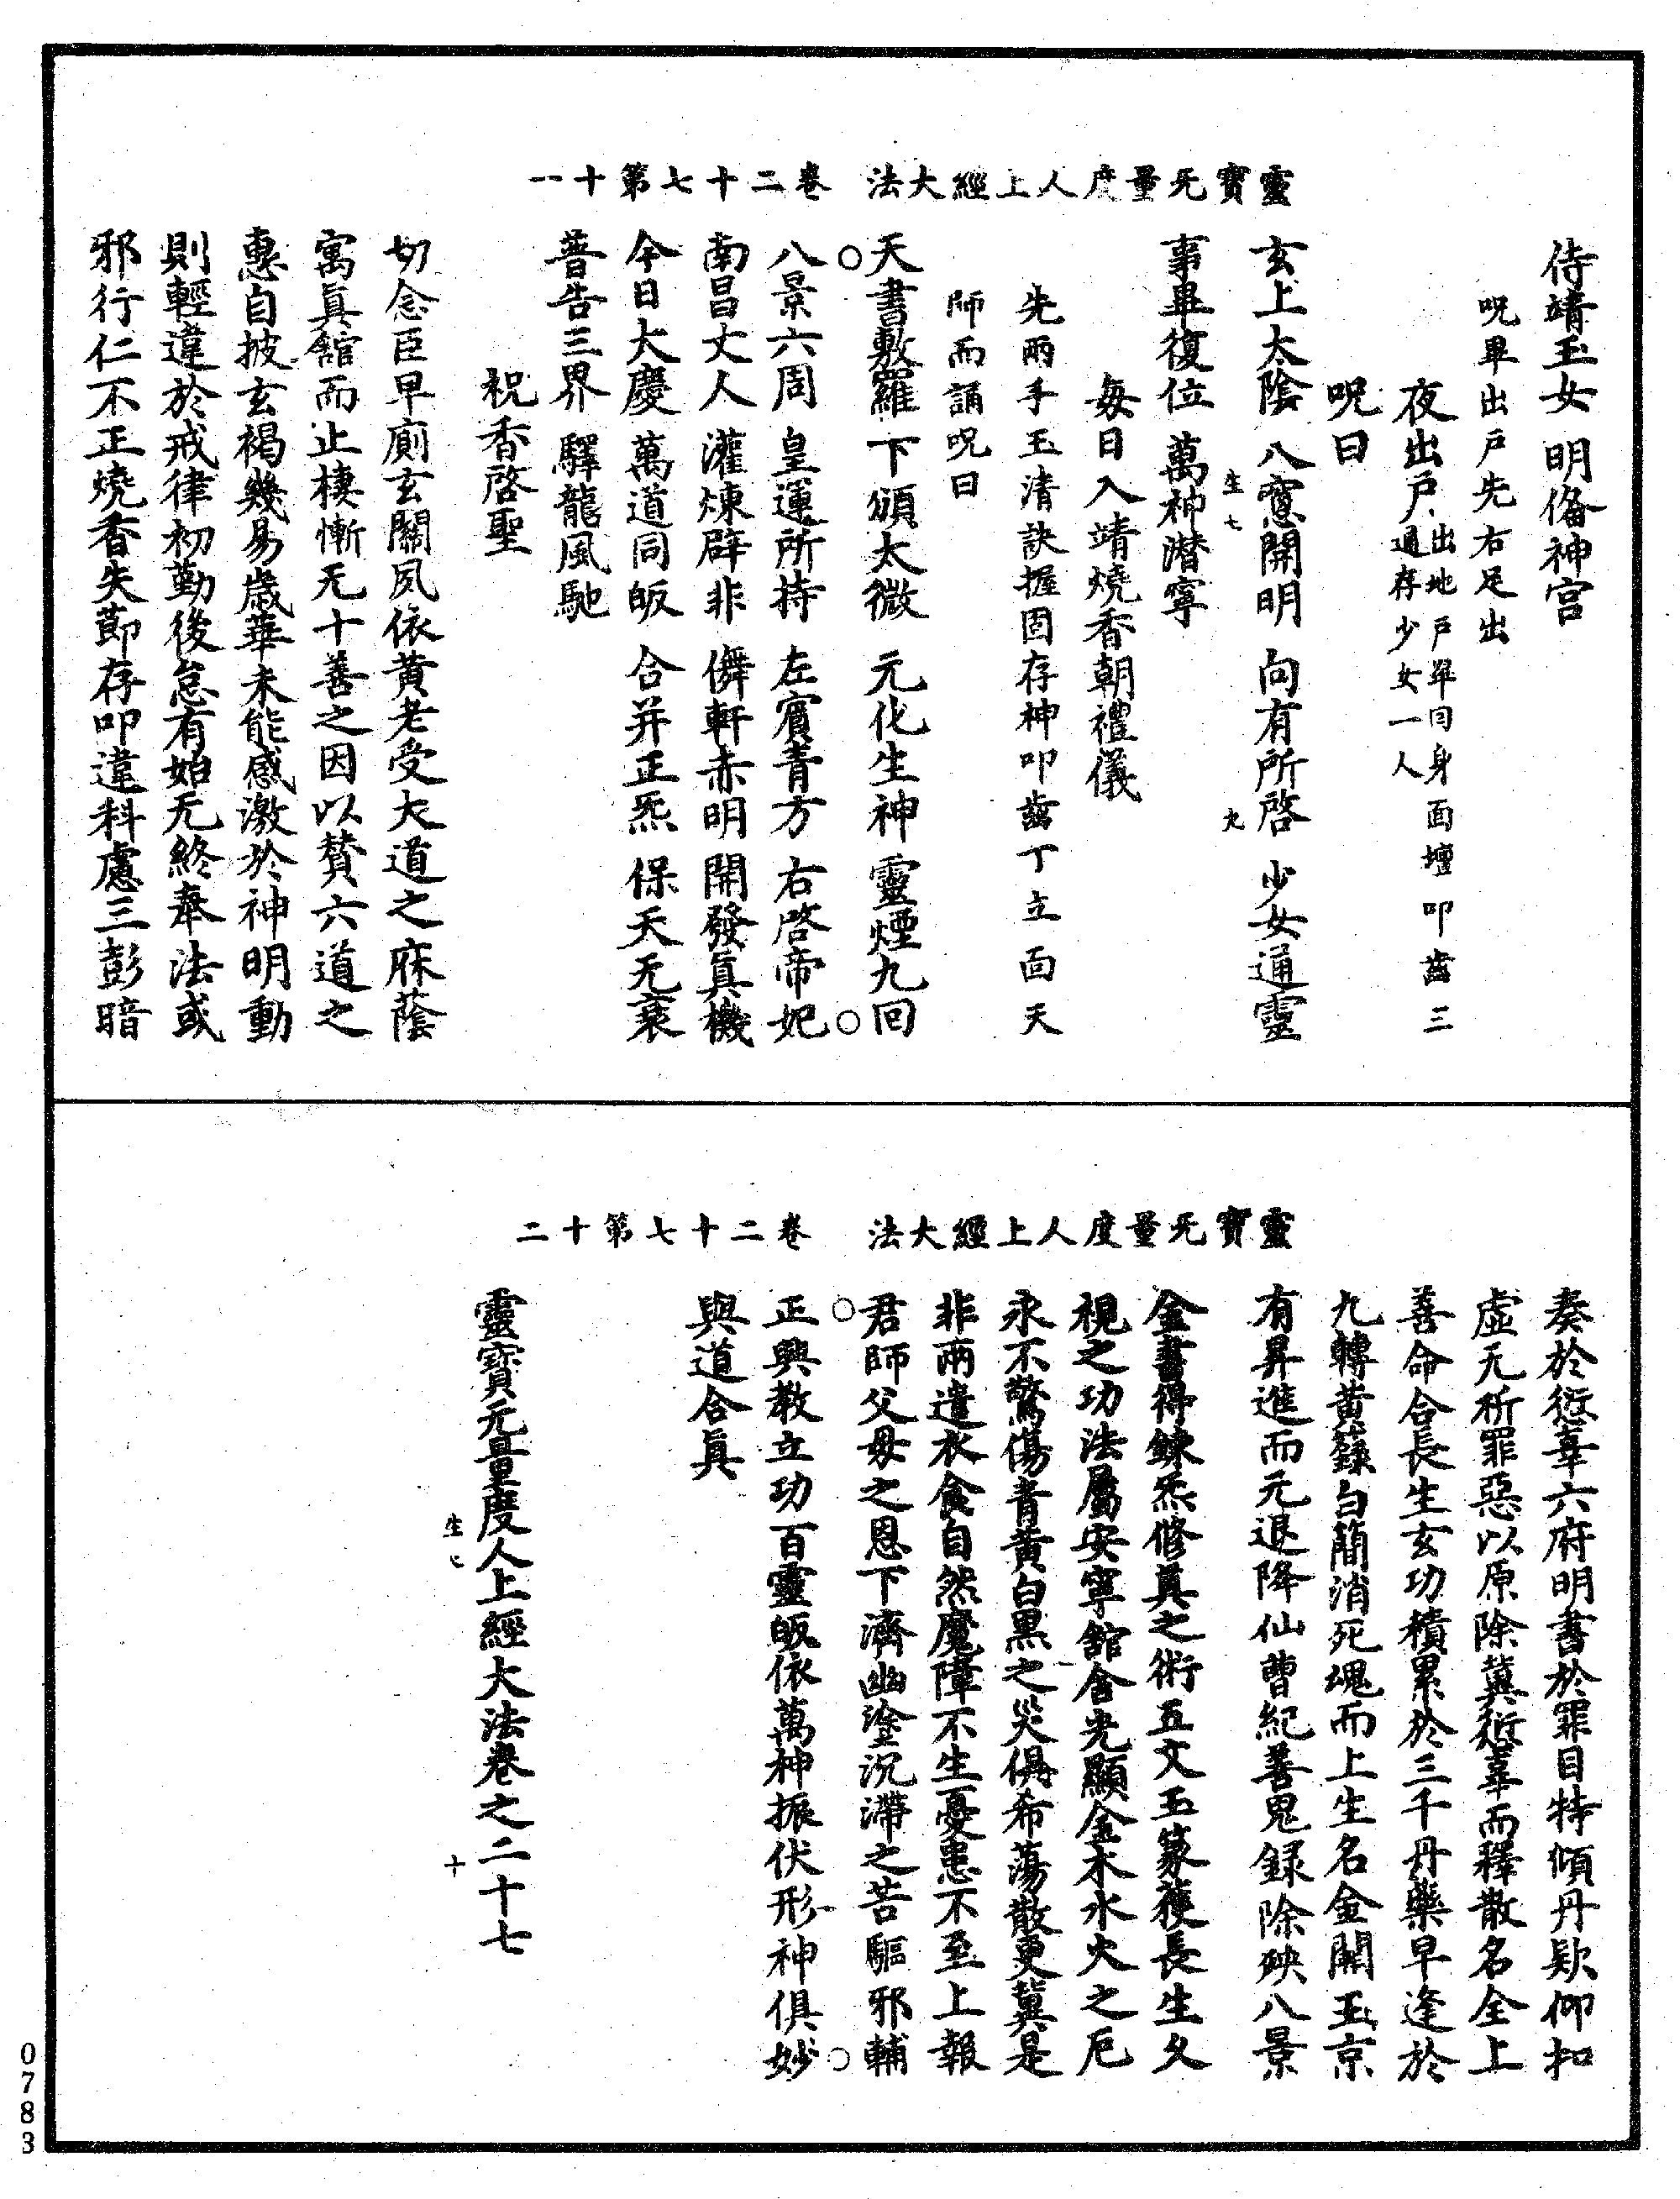 靈寶无量度人上經大法　卷二十七第十一
侍靖玉女　明俻神宫
呪畢出戶先右足出
夜出戶出地戶畢囘身面壇叩齒三通存少女一人
呪曰
玄上太陰　八窻開明　向有所啓　少女通靈
生七　九
事畢復位　萬神潜寧
每日入靖燒香朝禮儀
先兩手玉清訣握固存神叩齒丁立面天
師而誦呪曰
天書敷羅　下頒太微　元化生神　靈煙九回
八景六周　皇運所持　左賓青方　右啓帝妃
南昌丈人　灌煉辟非　儛軒赤明　開發眞機
今日大慶　萬道同皈　合并正炁　保天无衰
普告三界　驛龍風馳
祝香啓聖
切念臣早廁玄關夙依黃老受大道之庥蔭
寓眞舘而止棲慚无十善之因以賛六道之
惠自披玄褐幾易歳華未能感激於神明動
則輕違於戒律初勤後怠有始无終奉法或
邪行仁不正燒香失節存叩違科慮三彭暗
靈寶无量度人上經大法　卷二十七第十二
奏於𠎝辜六府明書於罪目特傾丹欵仰扣
虛无祈罪惡以原除冀𠎝辜而釋散名全上
善命合長生玄功積累於三千丹藥早逢於
九轉黃籙白簡消死魂而上生名金關玉京
有昇進而元退降仙曹紀善鬼録除殃八景
金書得錬炁修眞之術五文玉篆獲長生久
視之功法屬安寧舘舍光顯金木水火之厄
永不驚傷青黃白黒之災俱希蕩散更冀是
非兩遣衣食自然魔障不生憂患不至上報
君師父母之恩下濟幽塗沉滯之苦驅邪輔
正興教立功百靈皈依萬神振伏形神俱妙
與道合眞
靈寶元量度人上經大法卷之二十七
生七　十
0783